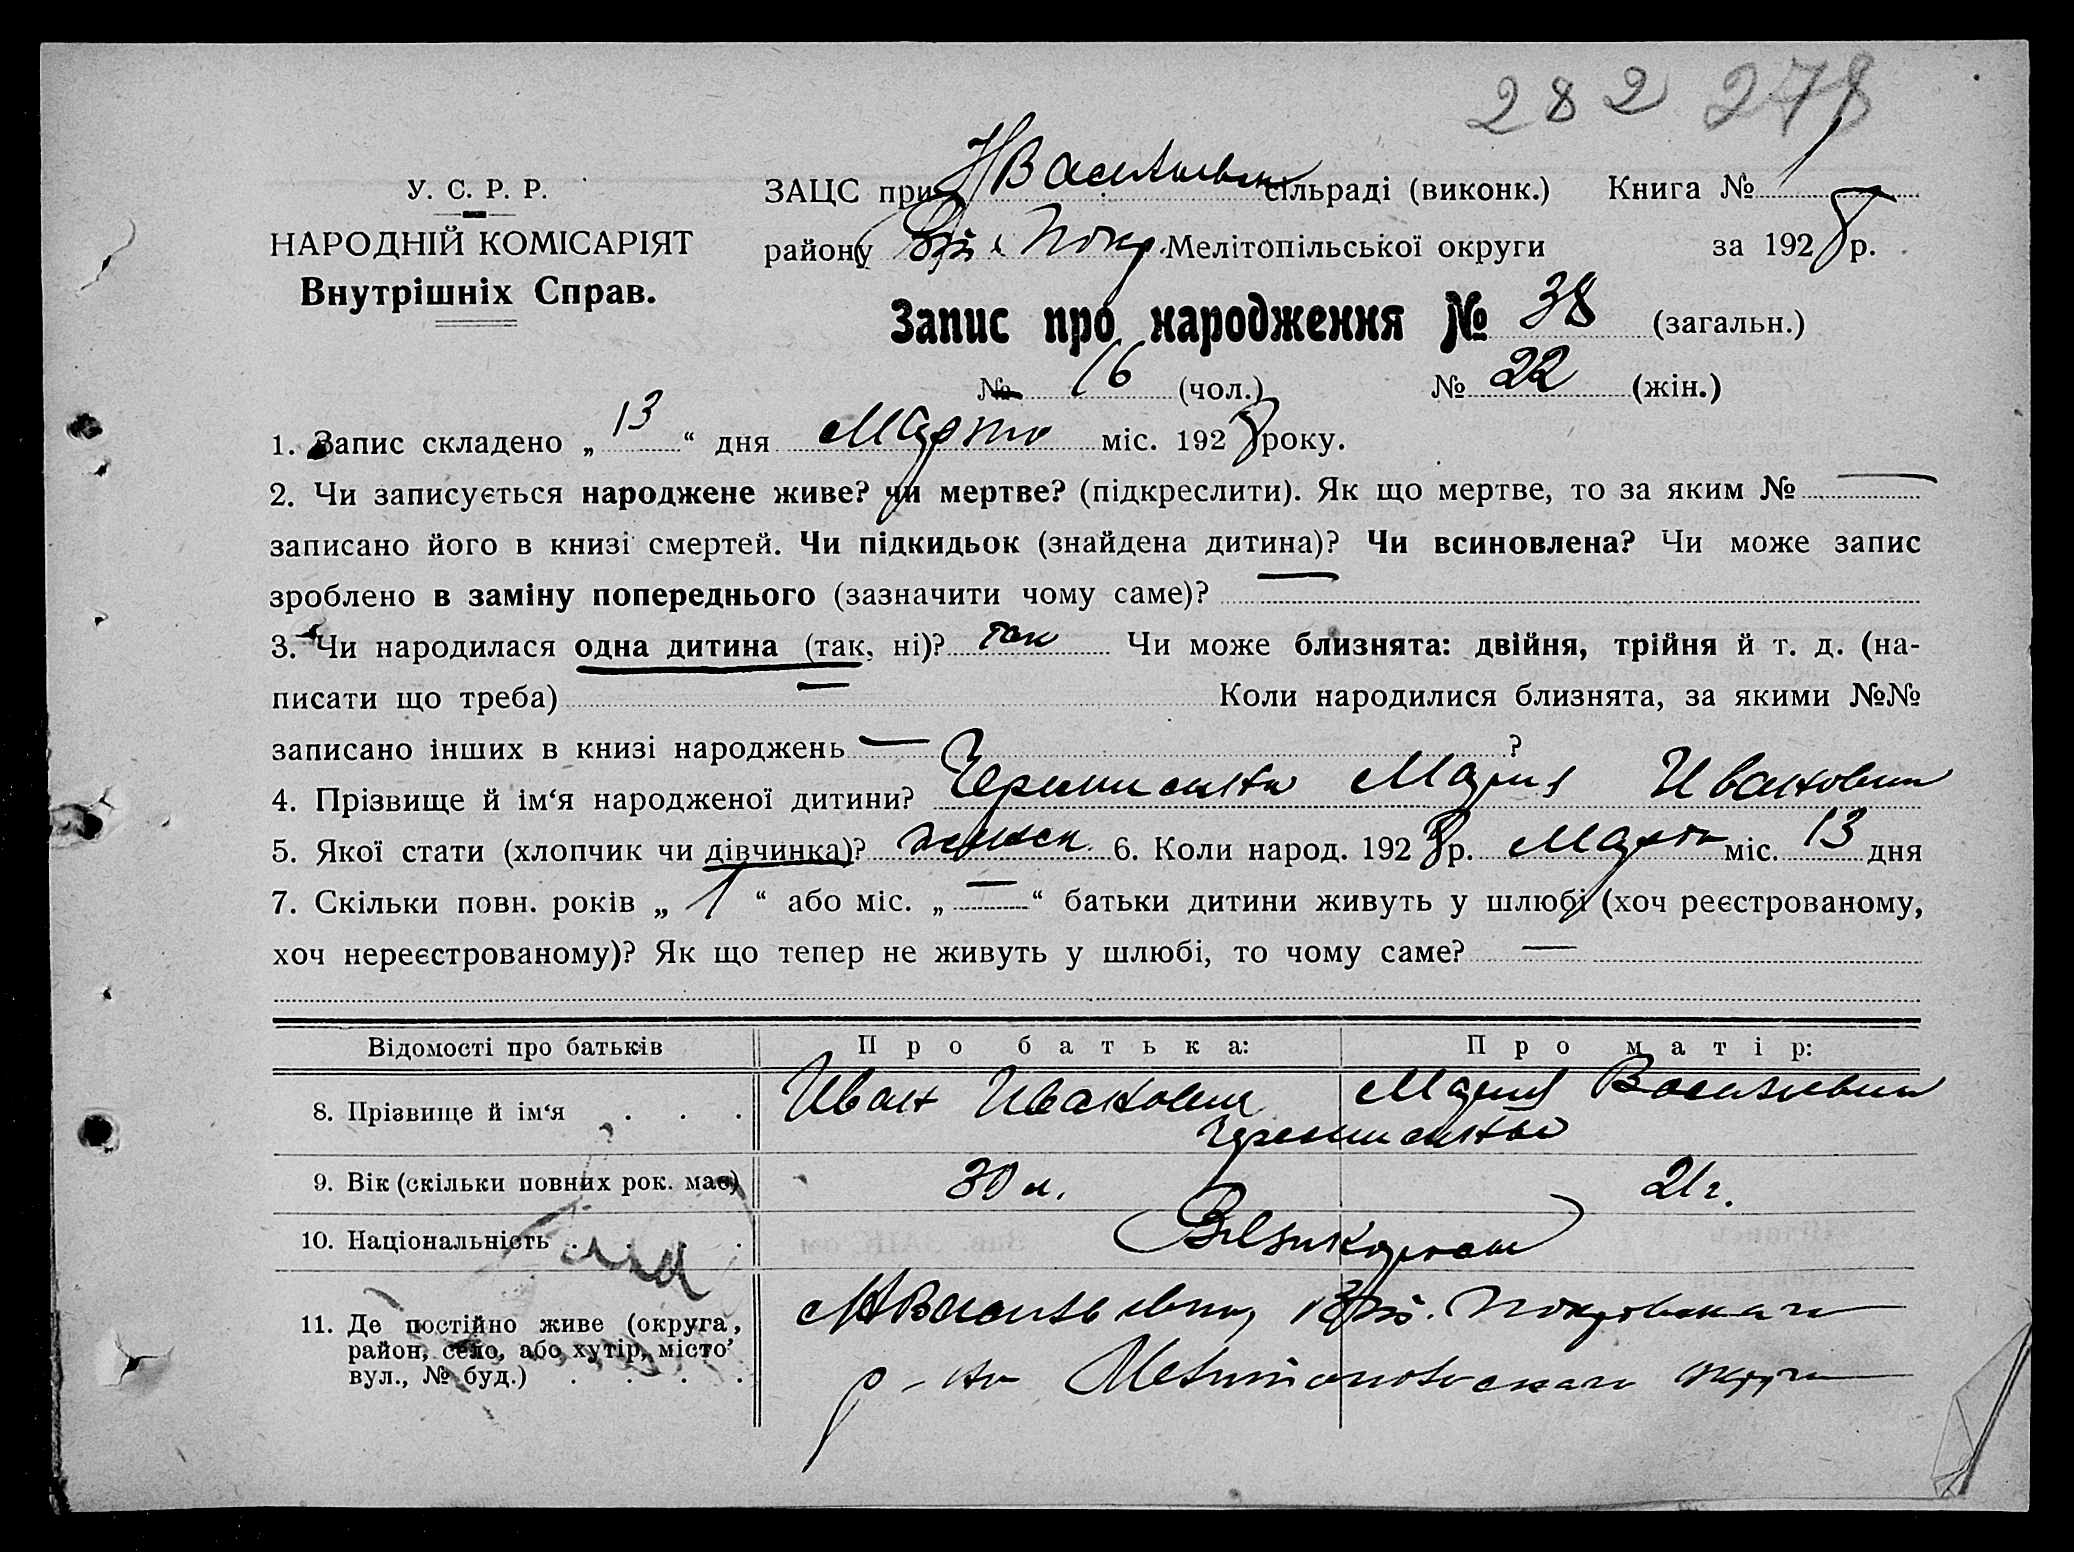 282 278
У. С. Р. Р.
НАРОДНІЙ КОМІСАРІЯТ
Внутрішніх Справ.
ЗАЦС при НВасильев сільраді (виконк.) Книга № 1
району Вел. Покр. Мелітопільської округи за 1928 р.
Запис про народження № 38 (загальн.)
№ 16 (чол.) № 22 (жін.)
1. Запис складено „ 13 “ дня Марта міс. 1928 року.
2. Чи записується народжене живе? чи мертве? (підкреслити). Як що мертве, то за яким № —
записано його в книзі смертей. Чи підкидьок (знайдена дитина)? Чи всиновлена? Чи може запис
зроблено в заміну попереднього (зазначити чому саме)? —
3. Чи народилася одна дитина (так, ні)? так Чи може близнята: двійня, трійня й т. д. (на-
писати що треба) — Коли народилися близнята, за якими №№
записано інших в книзі народжень — ?
4. Прізвище й ім‘я народженої дитини? Мария Ивановна
5. Якої стати (хлопчик чи дівчинка)? женск. 6. Коли народ. 1928 р. Марта міс. 13 дня
7. Скільки повн. років „ 1 “ або міс. „ — “ батьки дитини живуть у шлюбі (хоч реєстрованому,
хоч нереєстрованому)? Як що тепер не живуть у шлюбі, то чому саме? —
Відомості про батьків Про батька: Про матір:
8. Прізвище й ім‘я . . . Иван Иванович Мария Васильевна
9. Вік (скільки повних рок. має) 30 л. 21 г.
10. Національність . . . . Великоросы
11. Де постійно живе (округа, НВасильевка, Покровскаго
район, село, або хутір, місто’ р-на Мелитопольскаго округа
вул., № буд.) . . . .